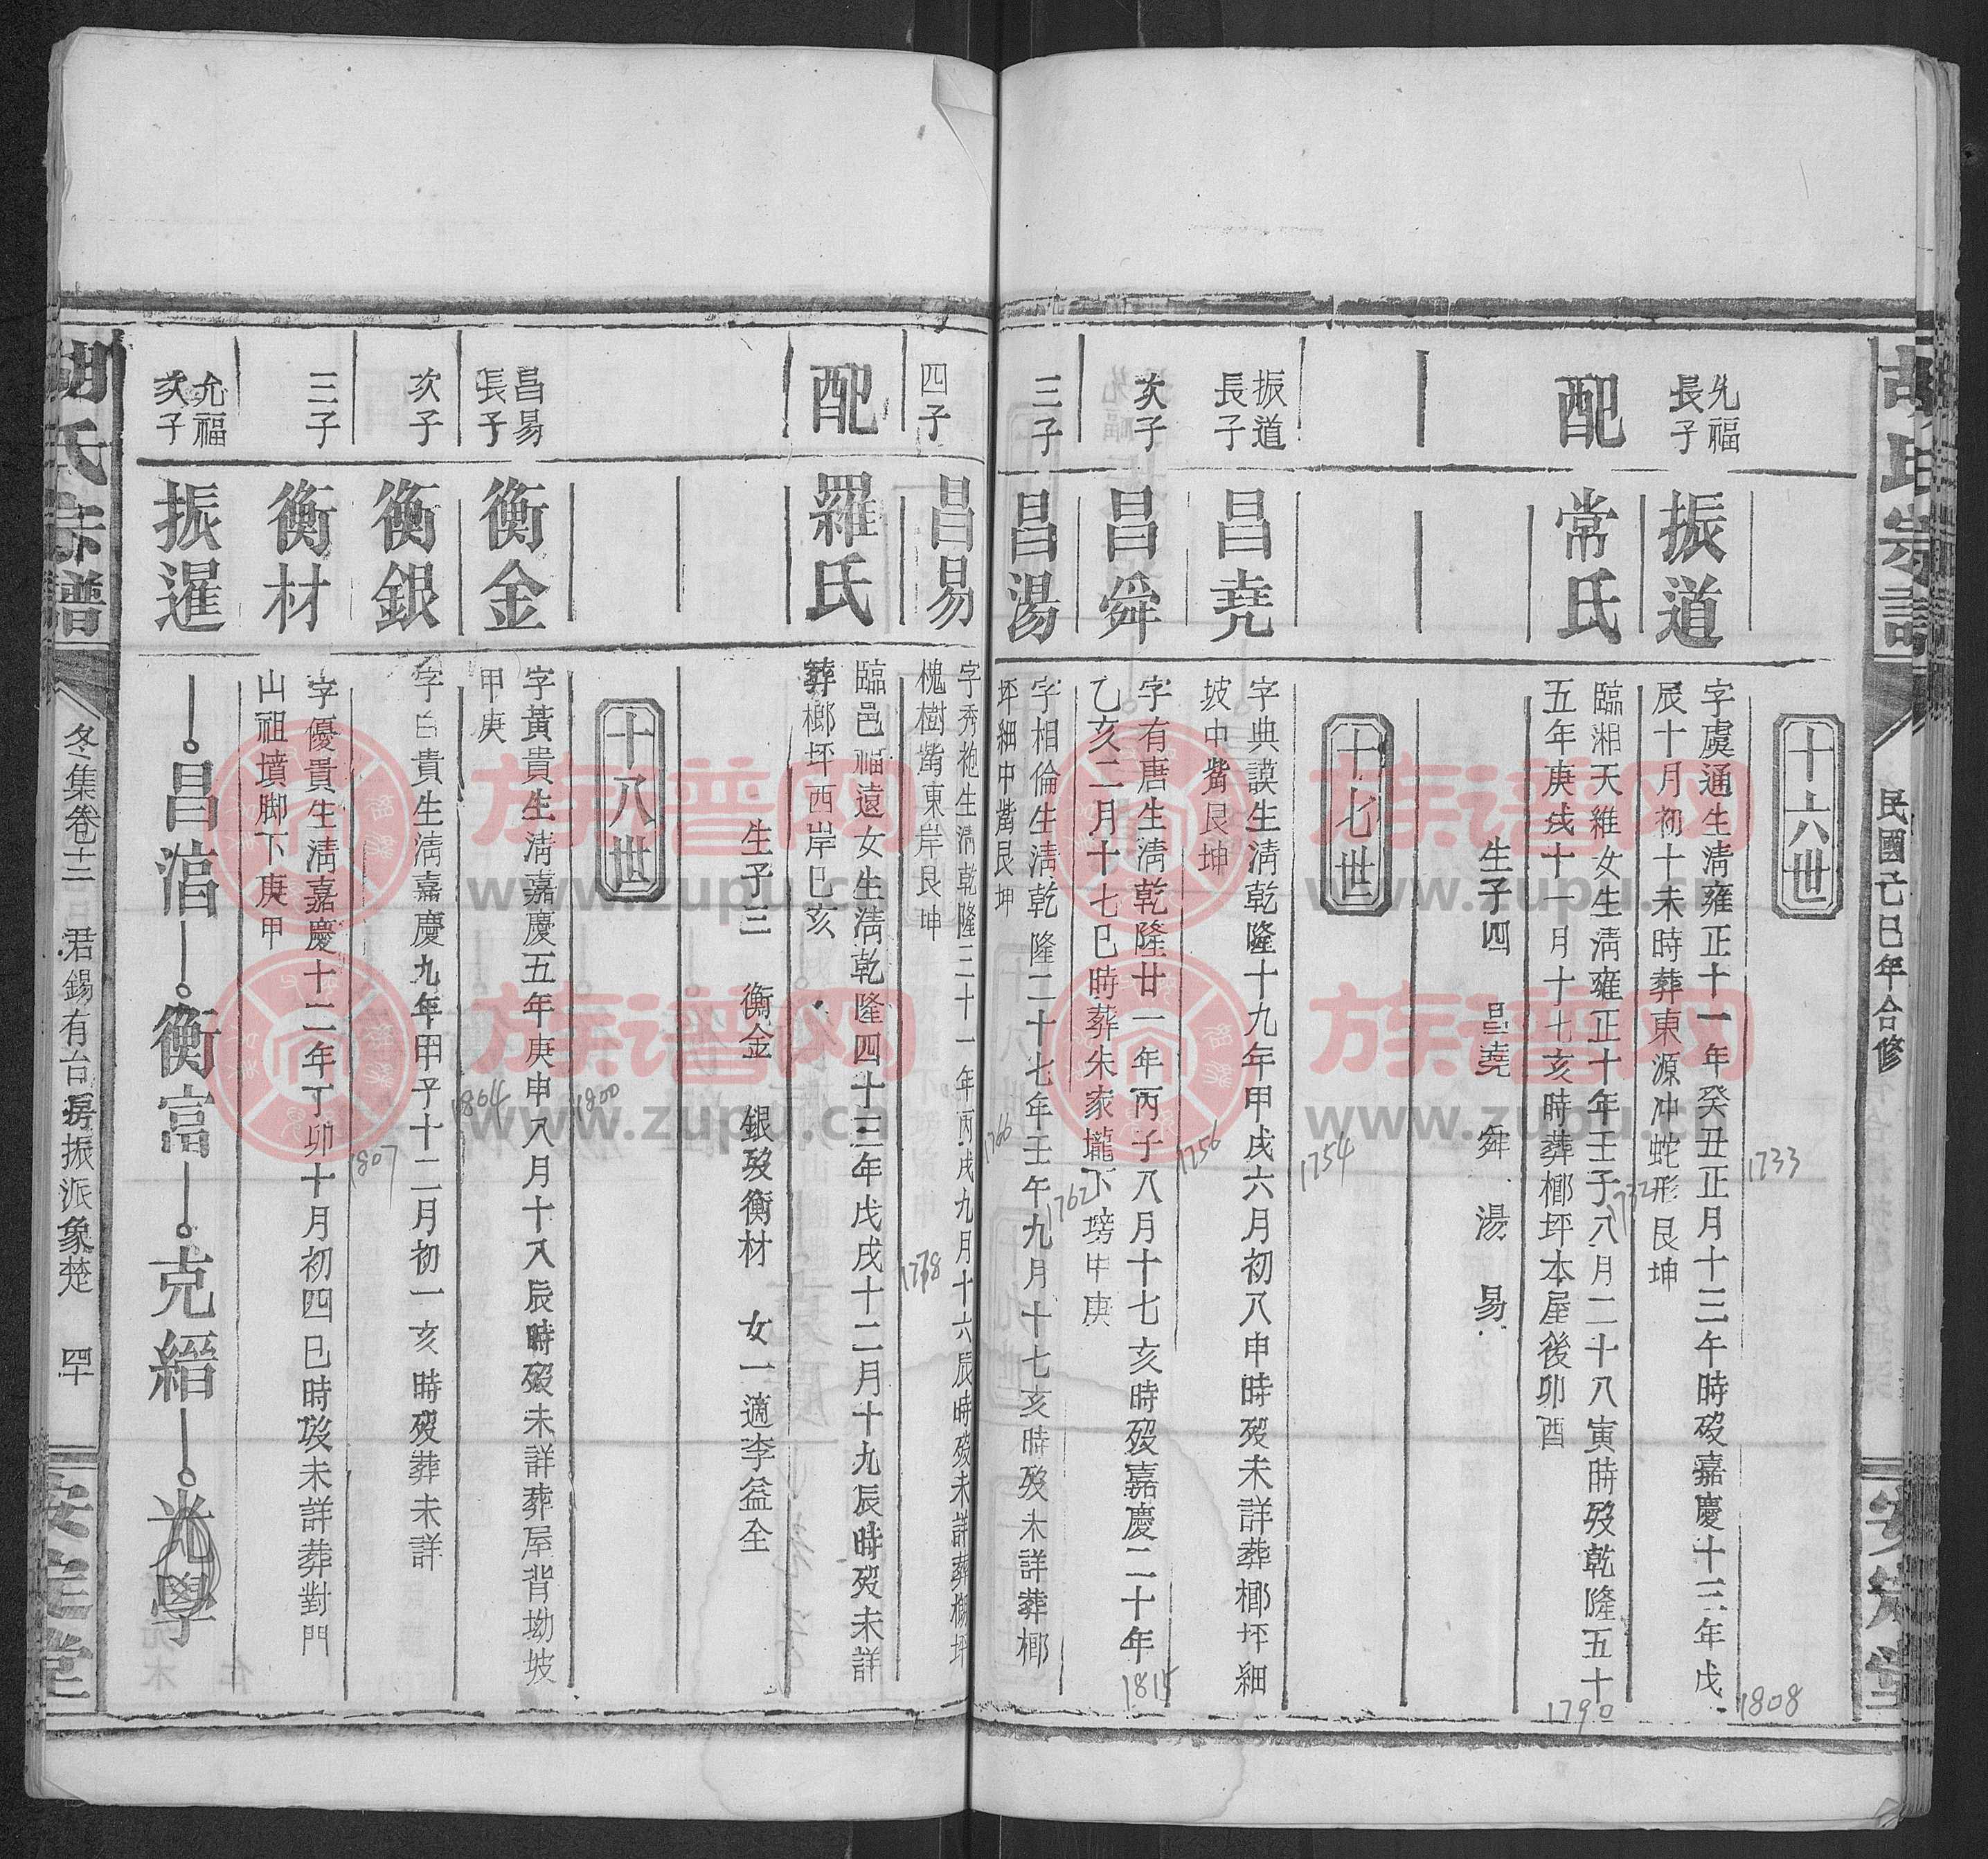 胡氏宗譜
民國乙巳年合修
安定堂
十六世
允福長子
振道
字虞通生清雍正十一年癸丑正月十三午時歿嘉慶十三年戊
辰十月初十未時葬東源冲蛇形艮坤
1733
1808
配
常氏
臨湘天維女生清雍正十年壬子八月二十八寅時歿乾隆五十
五年庚戌十一月十七亥時葬槨坪本屋後卯酉
1732
1790
生子四 昌堯 舜 湯 易
十七世
振道長子
昌堯
字典謨生清乾隆十九年甲戌六月初八申時歿未詳葬槨坪細
坡中嘴艮坤
1754
次子
昌舜
字有唐生清乾隆廿一年丙子八月十七亥時歿嘉慶二十年
乙亥二月十七巳時葬朱家壠下塝甲庚
1756
1815
三子
昌湯
字相倫生清乾隆二十七年壬午九月十七亥時歿未詳葬槨
坪細中嘴艮坤
1762
四子
昌易
字秀袍生清乾隆三十一年丙戌九月十六辰時歿未詳葬槨坪
槐樹嘴東岸艮坤
1766
配
羅氏
臨邑福遠女生清乾隆四十三年戊戌十二月十九辰時歿未詳
葬槨坪西岸巳亥
1778
生子三 衡金 銀歿衡材 女一適李益全
十八世
昌易長子
衡金
字黃貴生清嘉慶五年庚申八月十八辰時歿未詳葬屋背坳坡
甲庚
1800
次子
衡銀
字白貴生清嘉慶九年甲子十二月初一亥時歿葬未詳
1804
三子
衡材
字優貴生清嘉慶十二年丁卯十月初四巳時歿未詳葬對門
山祖墳脚下庚甲
1807
允福次子
振暹
昌涫 衡富 克縉 光學
胡氏宗譜
冬集卷十三 君錫有台房振派象楚 四十
安定堂
族谱网
www.zupu.cn
族谱网
www.zupu.cn
族谱网
www.zupu.cn
族谱网
www.zupu.cn